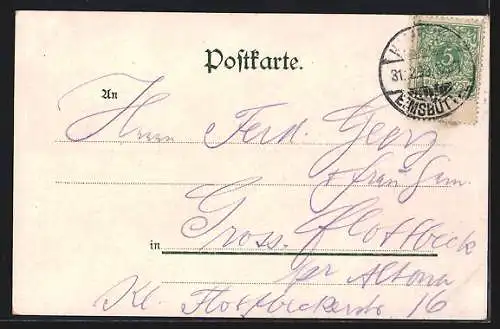 Postkarte.
5
31.12.
EIMSBÜTT
An
Herrn Ferd. Georg
in
Gross-Flottbeck
per Altona
Kl. Flottbeckerstr 16